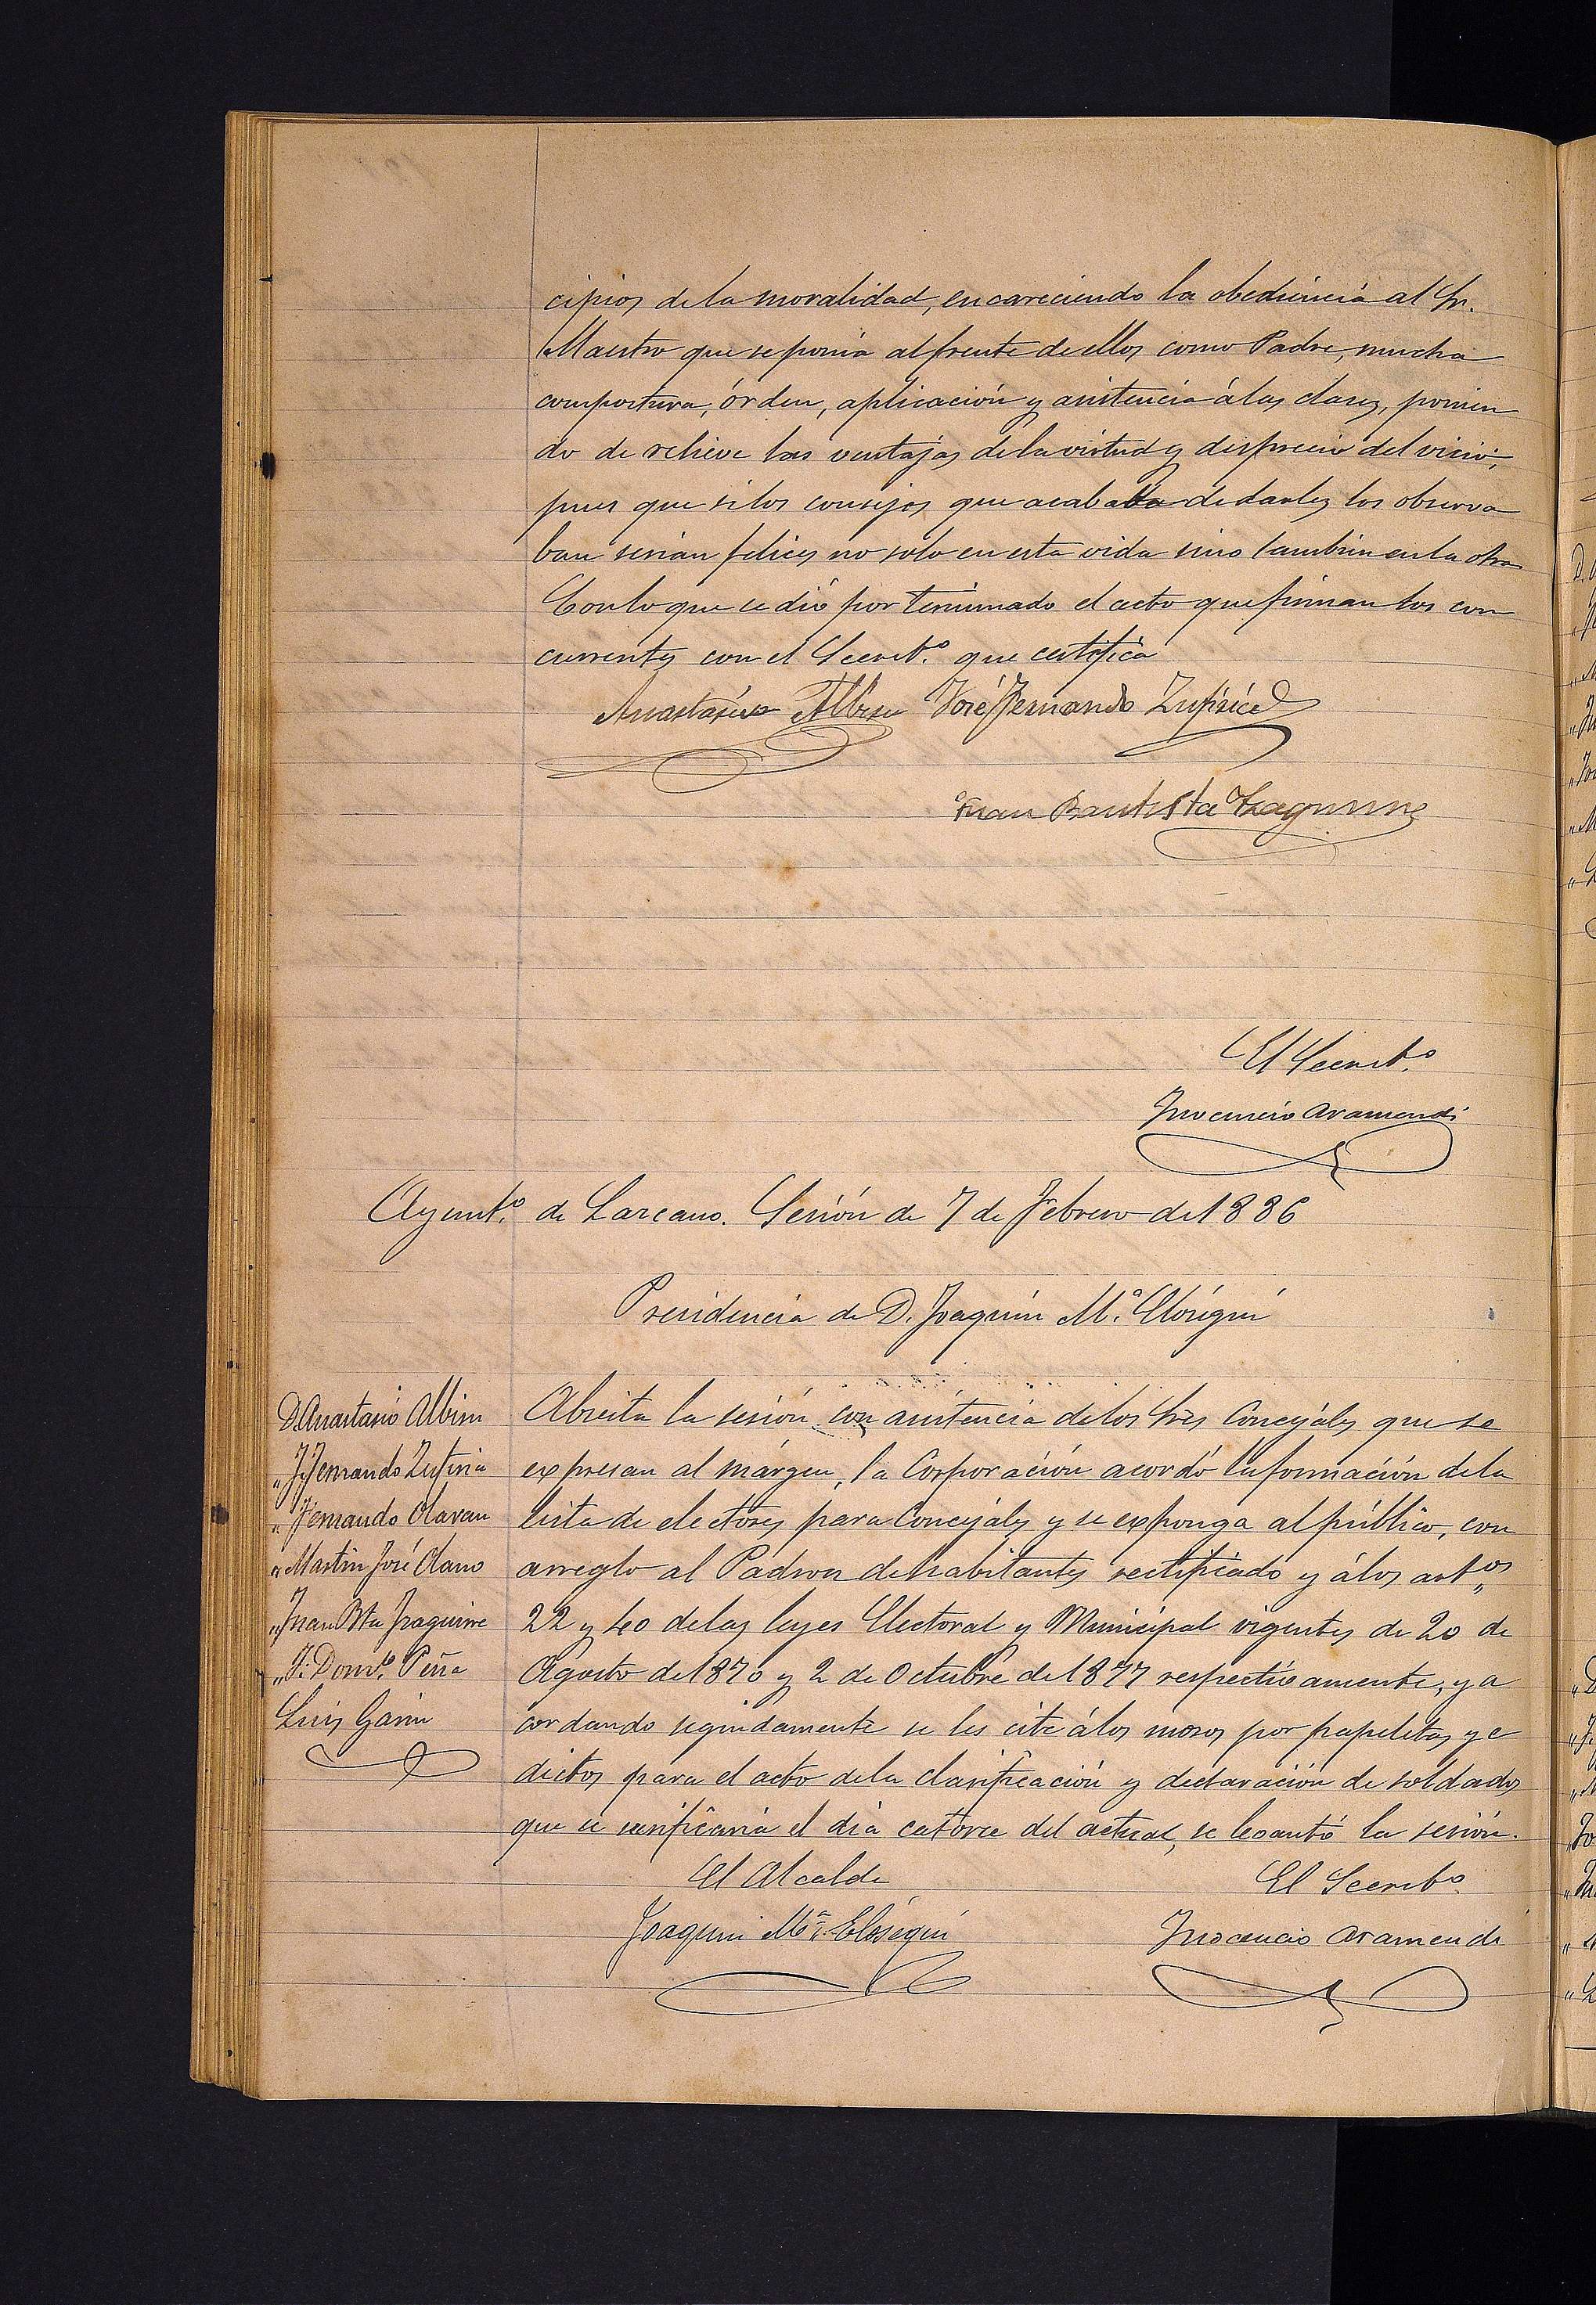 cipios de la moralidad, encareciendo la obediencia al Sr.
Maestro que se ponía al frente de ellos como Padre, mucha
compostura, órden, aplicación y asistencia á las clases, ponien
do de relieve las ventajas de la virtud y desprecio del vicio,
pues que si los consejos que acababa de darles los observa
ban serian felices no solo en esta vida sino tambien en la otra
Con lo que se dió por terminado el acto que firman los con
currentes con el Secret.º que certifica
Anastasio Albisu José Fernando Zufiria
Juan Bautista Yraguirre
El Secret.º
Inocencio Aramendi
Ayunt.º de Lazcano. Sesión de 7 de Febrero de 1886
Presidencia de D. Joaquin M.ª Elósegui
D. Anastasio Albisu
" J. Fernando Zufiria
" Fernando Olavan
" Martin José Olano
" Juan Bta Yraguirre
" J. Dom.º Peña
Luis Garin
Abierta la sesión con asistencia de los Sres Concejales que se
expresan al márgen, la Corporación acordó la formación de la
lista de electores para Concejales y se exponga al público, con
arreglo al Padron de habitantes rectificado y á los art.os
22 y 40 de las leyes Electoral y Municipal vigentes de 20 de
Agosto de 1870 y 2 de Octubre de 1877 respectivamente, y a
cordando seguidamente se les cite á los mozos por papeletas y e
dictos para el acto de la clasificación y declaración de soldados
que se verificaria el dia catorce del actual, se levantó la sesión.
El Alcalde
Joaquin M.ª Elósegui
El Secret.º
Inocencio Aramendi